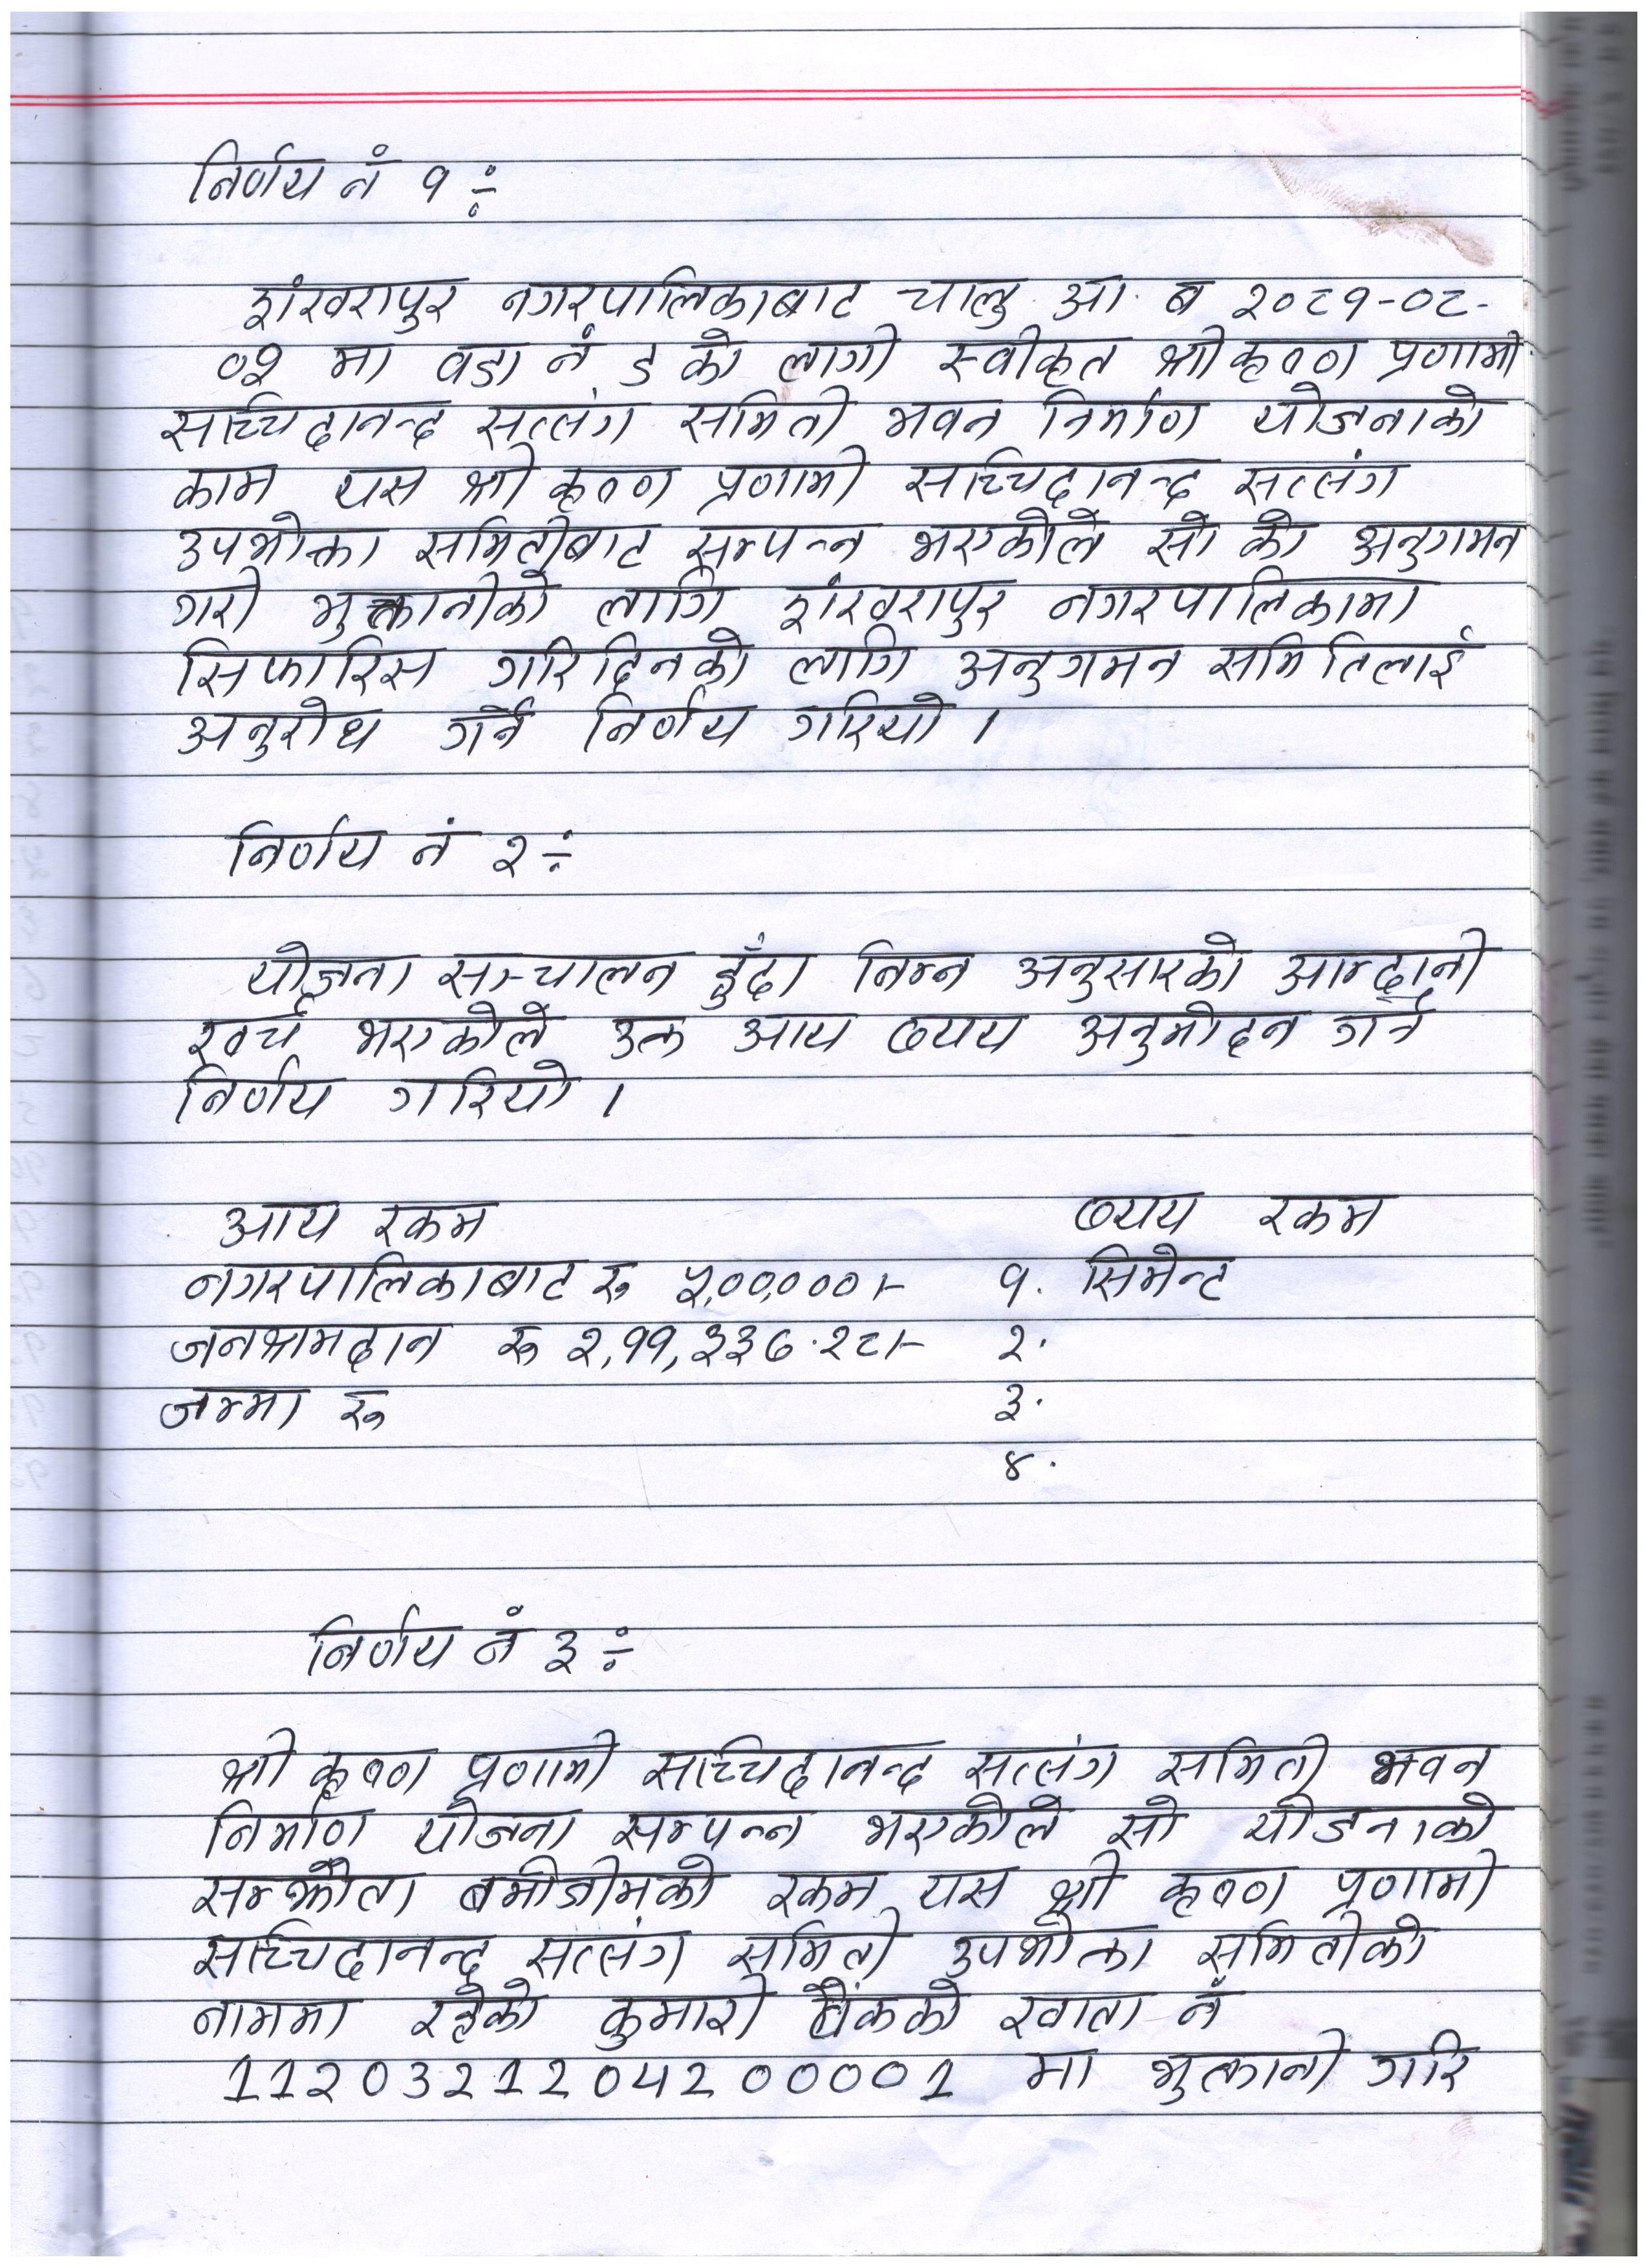 निर्णय नं १ ÷
शंखरापुर नगरपालिकाबाट चालु आ. ब २०८१-०८-
०१ मा वडा नं ८ को लागी स्वीकृत श्री कृष्ण प्रणामी
सच्चिदानन्द सत्संग समिती भवन निर्माण योजनाको
काम यस श्री कृष्ण प्रणामी सच्चिदानन्द सत्संग
उपभोक्ता समितीबाट सम्पन्न भएकोले सो को अनुगमन
गरी भुक्तानीको लागि शंखरापुर नगरपालिकामा
सिफारिस गरिदिनको लागि अनुगमन समितिलाई
अनुरोध गर्ने निर्णय गरियो ।
निर्णय नं २ ÷
योजना सन्चालन हुँदा निम्न अनुसारको आम्दानी
खर्च भएकोले उक्त आय व्यय अनुमोदन गर्ने
निर्णय गरियो ।
आय रकम व्यय रकम
नगरपालिकाबाट रु ५,००,०००।- १. सिमेन्ट
जनश्रमदान रु २,११,३३७.२८।- २.
जम्मा रु ३.
४.
निर्णय नं ३ ÷
श्री कृष्ण प्रणामी सच्चिदानन्द सत्संग समिती भवन
निर्माण योजना सम्पन्न भएकोले सो योजनाको
सम्झौता बमोजीमको रकम यस श्री कृष्ण प्रणामी
सच्चिदानन्द सत्संग समिती उपभोक्ता समितीको
नाममा रहेको कुमारी बैंकको खाता नं
1120321204200001 मा भुक्तानी गरि